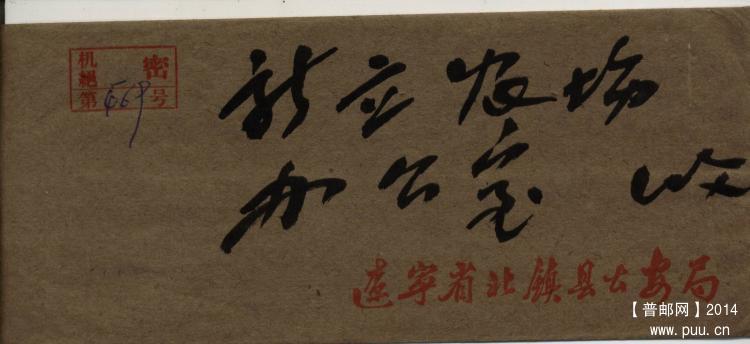 机 密
絕
第569号
新立农场
办公室 收
辽宁省北镇县公安局
【普邮网】2014
www.puu.cn